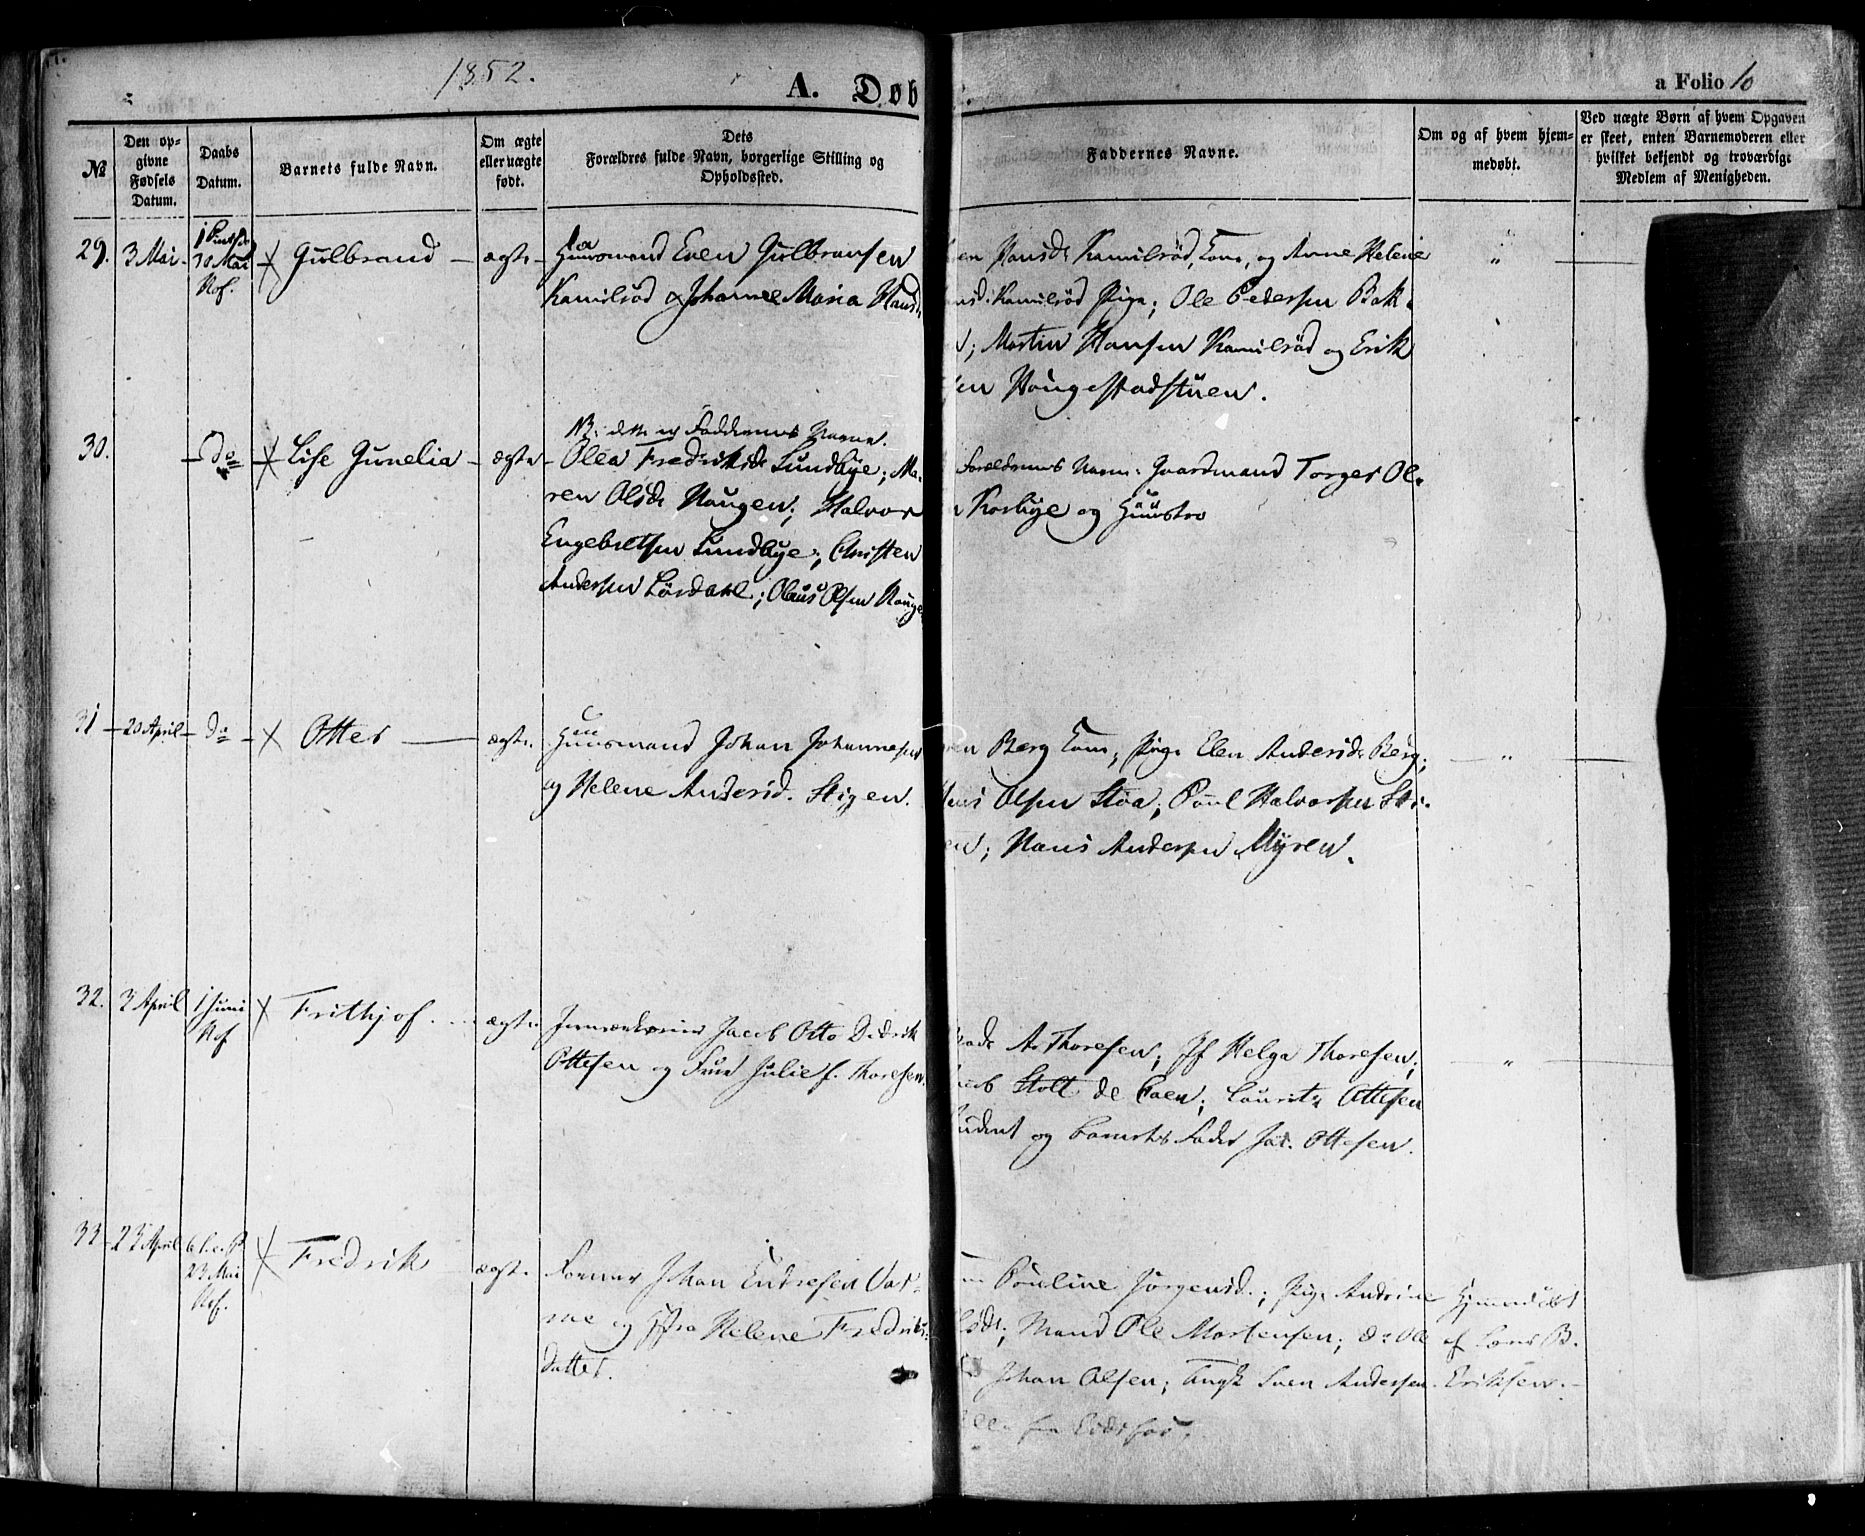 1852.
A. Døb
a Folio 10
№
Den op-
givne
Fødsels
Datum.
Daabs
Datum.
Barnets fulde Navn.
Om ægte
eller uægte
født.
Dets
Forældres fulde Navn, borgerlige Stilling og
Opholdssted.
Faddernes Navne.
Om og af hvem hjem-
medøbt.
Ved uægte Børn af hvem Opgaven
er skeet, enten Barnemoderen eller
hvilket bekjendt og troværdigt
Medlem af Menigheden.
29. 3 Mai 30 Mai Gulbrand ægte Huusmand Even Gulbransen
Kamilrød & Johanne Maria Hansd.
Hansdr Kamilrød, Kone, og Anne Helene
Kamilrød Pige; Ole Pedersen Bak-
; Martin Hansen Kamilrød og Erik
Haugestadstuen.
30. do Lise Gunelia ægte
NB: dette er Faddernes Navne.
Olea Fredriksdr Lundbye; Ma-
ren Olsdr Haugen; Halvor
Engebretsen Lundbye; Christen
Andersen Lørdahl; Olaus Olsen Hauge
Forældrenes Navn: Gaardmand Torger Ol-
Korbye og Huustro
31 20 April do Otter ægte Huusmand Johan Johannesen
og Helene Andersd. Stigen.
Berg Kone; Pige Elen Andersdr Berg;
Olsen Stoa; Poul Halvorsen Sti-
en; Hans Andersen Myren.
32. 3 April 1 Juni Frithjof. ægte Jacob Otto Didrik
Ottesen og Frue Julie f. Thoresen.
A. Thoresen; Jf Helga Thoresen;
Stolt de Coen; Lauritz Ottesen
Student og Barnets Fader Jac. Ottesen.
33 23 April 23 Mai Fredrik ægte Former Johan Endresen Var-
me og Hstru Helene Fredriks-
datter.
Pouline Jørgensd.; Pige Andrine
Mand Ole Mortensen; do Ole
Johan Olsen; Ungk Sven Andersen.
Alle fra Eidsfos.
Hjemmedøbt
af Lars B.
Eriksen.